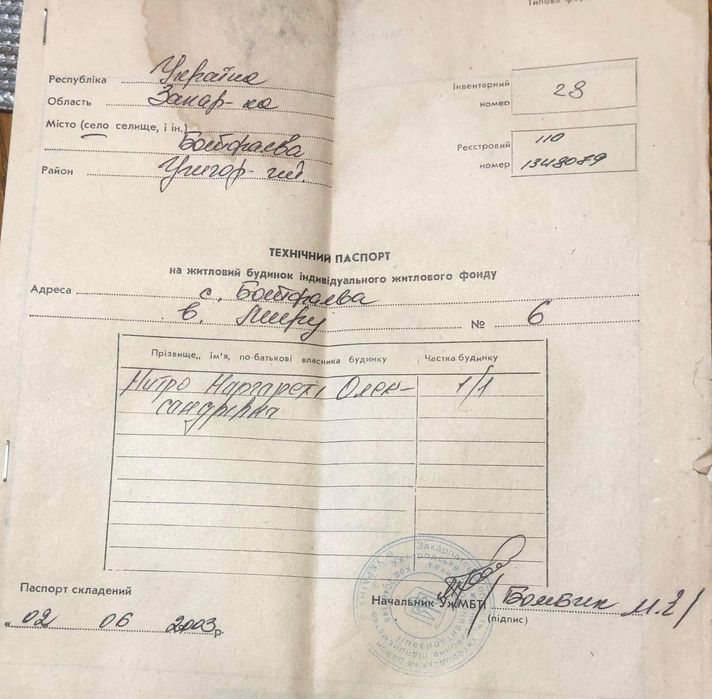 Типова фор
Республіка Україна
Область Закар-ка
Місто (село селище, і ін.)
Ботфалва
Район Ужгор-ий
Інвентарний
номер 28
Реєстровий 110
номер 1348079
ТЕХНІЧНИЙ ПАСПОРТ
на житловий будинок індивідуального житлового фонду
Адреса с. Ботфалва
в. Миру № 6
Прізвище, ім'я, по-батькові власника будинку Частка будинку
Олек- 1/1
сандрівна
Паспорт складений
Начальник УжМБТІ
(підпис)
„02 06 2003р.